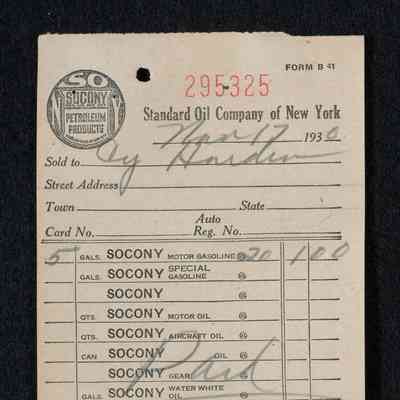 FORM B 41
SO
SOCONY
PETROLEUM
PRODUCTS
295325
Standard Oil Company of New York
Nov 17 1930
Sold to Cy Harden
Street Address
Town State
Auto
Card No. Reg. No.
5 GALS. SOCONY MOTOR GASOLINE @ 20 1 00
GALS. SOCONY SPECIAL GASOLINE @
SOCONY @
QTS. SOCONY MOTOR OIL @
QTS. SOCONY AIRCRAFT OIL @
CAN SOCONY OIL @
SOCONY GEAR @
GALS. SOCONY WATER WHITE OIL @
Paid